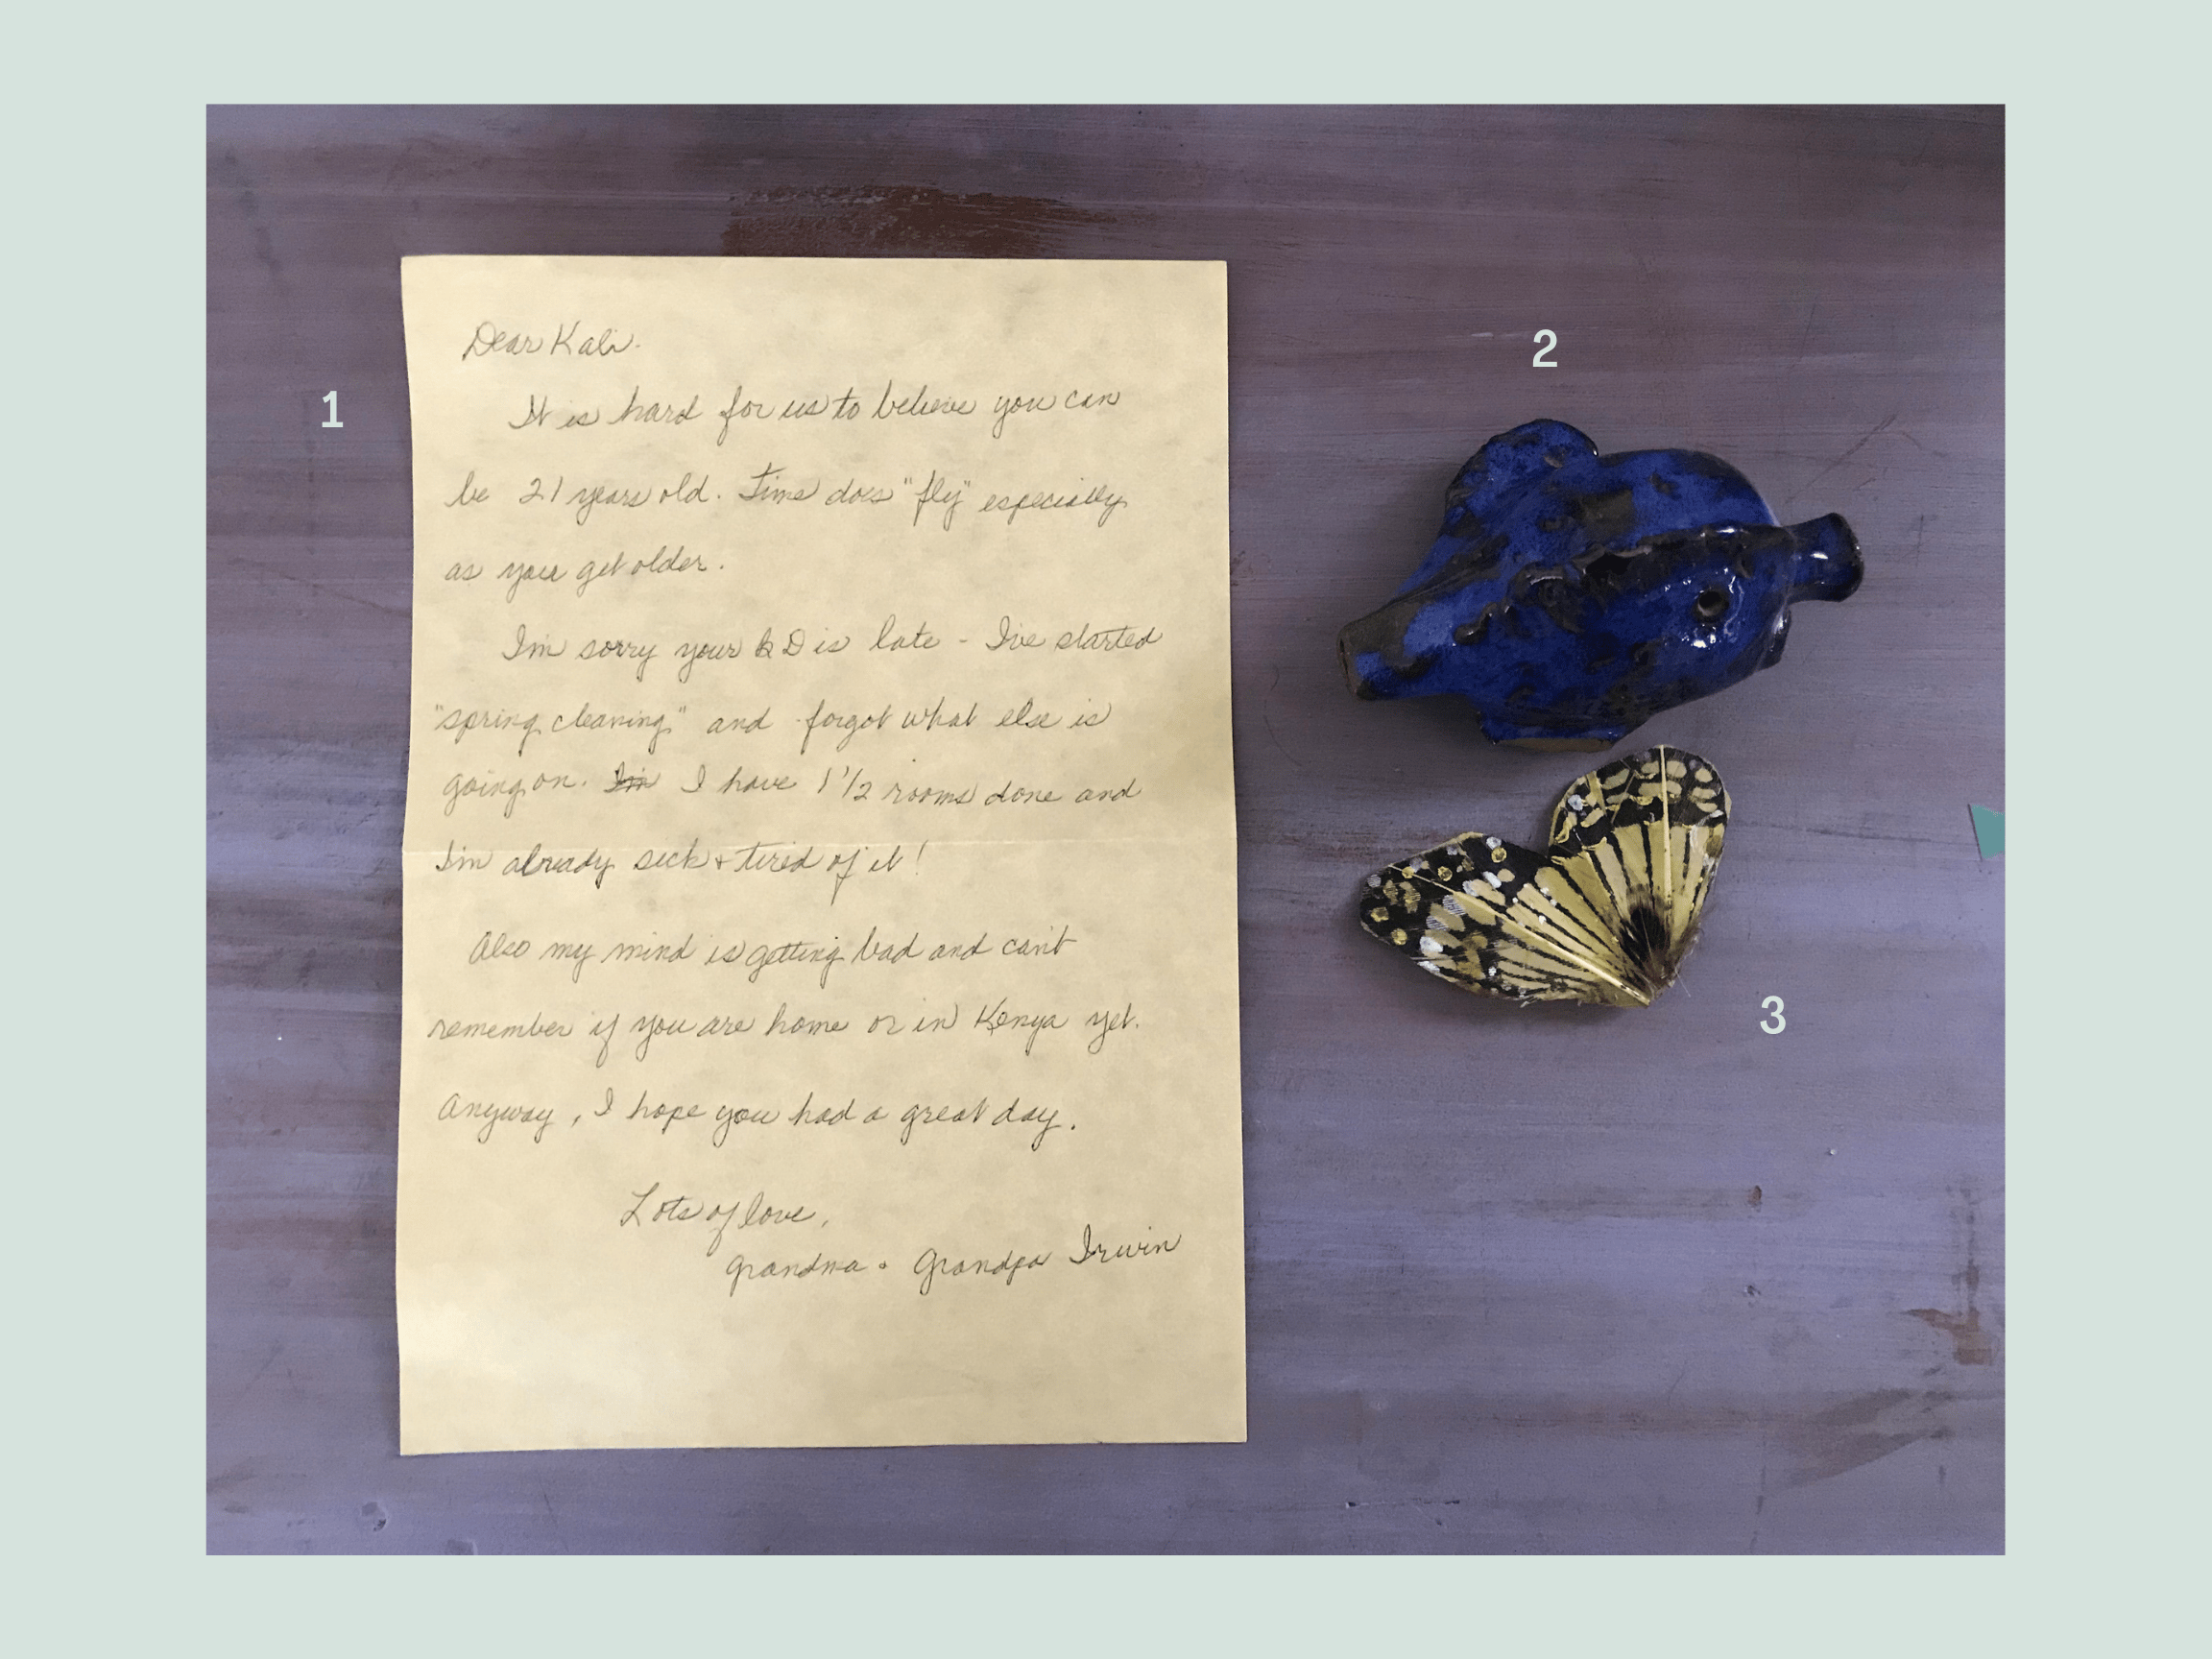 1
2
3
Dear Kali.
It is hard for us to believe you can
be 21 years old. Time does "fly" especially
as you get older.
I'm sorry your BD is late - I've started
"spring cleaning" and forgot what else is
going on. I'm I have 1 1/2 rooms done and
I'm already sick + tired of it!
Also my mind is getting bad and can't
remember if you are home or in Kenya yet.
Anyway, I hope you had a great day.
Lots of love,
Grandma + Grandpa Irwin